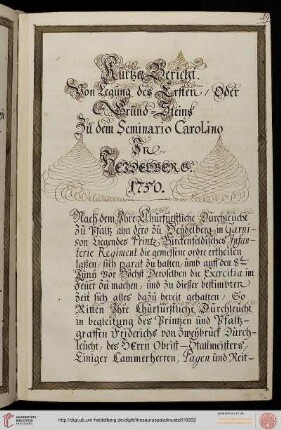 Kurtzer Bericht
Von Legung des Ersten / Oder
Grund-Steins
Zu dem Seminario Carolino
In
HEYDELBERG.
1750.
Nach dem Ihro Churfürstliche Dürchleücht
zü Pfaltz ahn dero zü Heÿdelberg in Garni-
son Liegendes Printz Birckenfeldisches Infan-
terie Regiment die gemessene ordre ertheilen
laßen, sich parat zü halten, umb auff den
Jünÿ vor Höchst Deroselben die Exercitia im
feüer zü machen, und zü dießer bestimbten
Zeit sich alles dazü bereit gehalten, So
Ritten Ihre Chürfürstliche Dürchleücht
in begleitung des Printzen und Pfaltz-
graffen Friderichs von Zweÿbrück Dürch-
leücht, des Herrn Obrist-Stallmeisters,
Einiger Cammerherren, Pagen und Reit-
http://digi.ub.uni-heidelberg.de/diglit/thesauruspalatinusbd1/0202